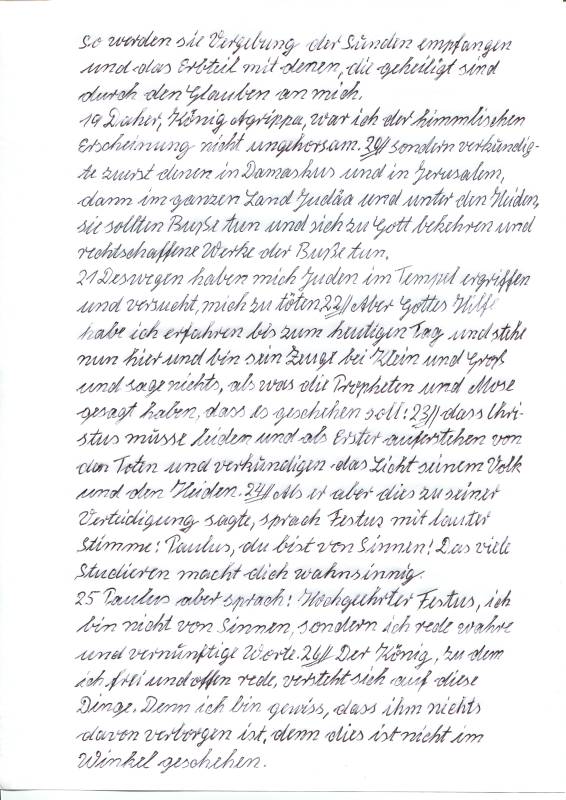 So werden sie Vergebung der Sünden empfangen
und das Erbteil mit denen, die geheiligt sind
durch den Glauben an mich.
19 Daher, König Agrippa, war ich der himmlischen
Erscheinung nicht ungehorsam. 20// sondern verkündig-
te zuerst denen in Damaskus und in Jerusalem,
dann im ganzen Land Judäa und unter den Heiden,
sie sollten Buße tun und sich zu Gott bekehren und
rechtschaffene Werke der Buße tun.
21 Deswegen haben mich Juden im Tempel ergriffen
und versucht, mich zu töten. 22// Aber Gottes Hilfe
habe ich erfahren bis zum heutigen Tag und stehe
nun hier und bin sein Zeuge bei Klein und Groß
und sage nichts, als was die Propheten und Mose
gesagt haben, dass es geschehen soll: 23// dass Chri-
stus müsse leiden und als Erster auferstehen von
den Toten und verkündigen das Licht seinem Volk
und den Heiden. 24// Als er aber dies zu seiner
Verteidigung sagte, sprach Festus mit lauter
Stimme: Paulus, du bist von Sinnen! Das viele
Studieren macht dich wahnsinnig.
25 Paulus aber sprach: Hochgeehrter Festus, ich
bin nicht von Sinnen, sondern ich rede wahre
und vernünftige Worte. 26// Der König, zu dem
ich frei und offen rede, versteht sich auf diese
Dinge. Denn ich bin gewiss, dass ihm nichts
davon verborgen ist, denn dies ist nicht im
Winkel geschehen.